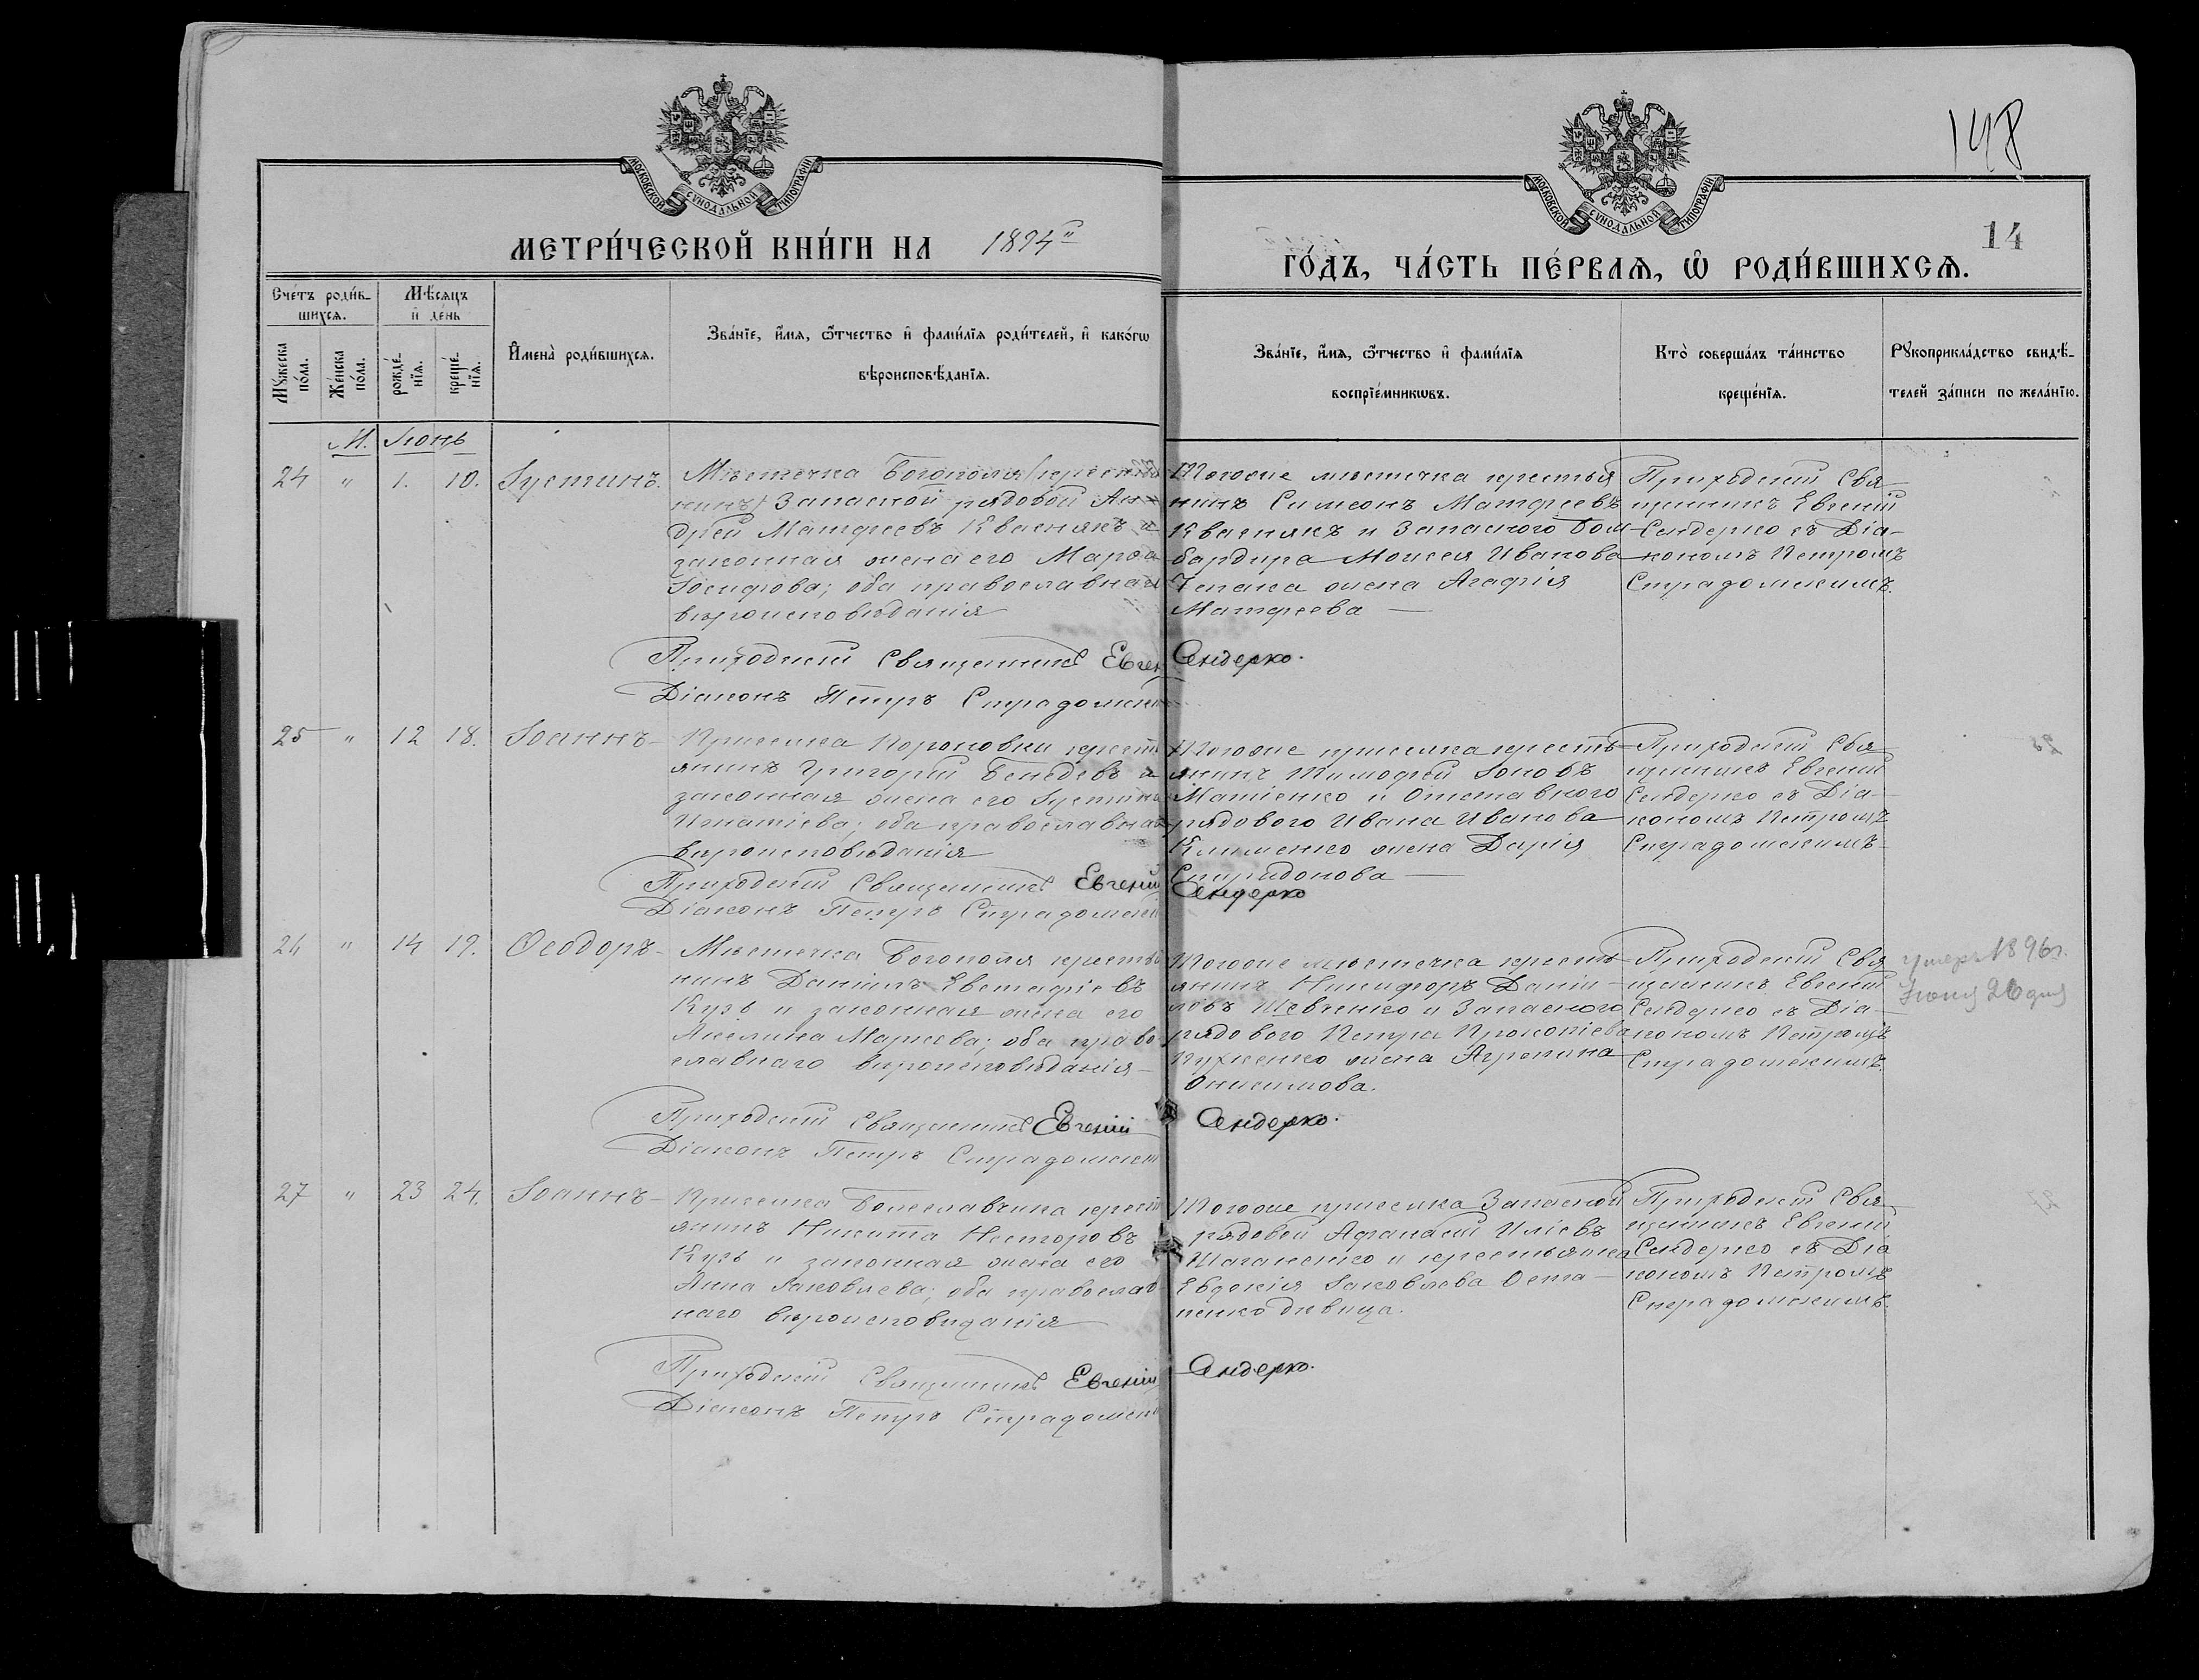 148
14
МОСКОВСКОЙ СѴНОДАЛЬНОЙ ТИПОГРАФІИ
МОСКОВСКОЙ СѴНОДАЛЬНОЙ ТИПОГРАФІИ
МЕТРИ́ЧЕСКОЙ КНИ́ГИ НА 1894й
ГО́ДЪ, ЧА́СТЬ ПЕ́РВАЯ, Ѽ РОДИ́ВШИХСѦ.
Сче́тъ роди́в-
шихсѧ.
Мꙋ́жеска по́ла.
Же́нска по́ла.
Мѣ́сѧцъ
и҆ де́нь
рожде́-
нїѧ.
креще́-
нїѧ.
И҆мена̀ роди́вшихсѧ.
Зва́нїе, и҆́мѧ, ѻ҆́тчество и҆ фами́лїѧ роди́телей, и҆ како́гѡ
вѣроисповѣ́данїѧ.
Зва́нїе, и҆́мѧ, ѻ҆́тчество и҆ фами́лїѧ
воспрїе́мникѡвъ.
Кто̀ соверша́лъ та́инство
креще́нїѧ.
Рꙋкоприкла́дство свидѣ́-
телей за́писи по жела́нїю.
М. Іюнь
24 " 1. 10. Іустинъ.
Мѣстечка Богополя (крестья
нинъ) Запасной рядовой Ан-
дрей Матфеевъ Квасникъ и
законная жена его Марѳа
Іосифова; оба православнаго
вѣроисповѣданія
Тогоже мѣстечка крестья
нинъ Симеонъ Матфеевъ
Квасникъ и Запасного Бом-
бардира Моисея Иванова
Чепака жена Агафія
Матфеева —
Приходскій Свя-
щенникъ Евгеній
Сендерко съ Діа-
кономъ Петромъ
Страдомскимъ.
Приходскій Священникъ Евгеній Сендерко.
Діаконъ Петръ Страдомскій
25 " 12 18. Іоаннъ-
Приселка Короновки крестьь
янинъ Григорій Бенедевъ и
законная жена его Іустина
Игнатіева; оба православнаго
вѣроисповѣданія
Тогоже приселка кресть-
янинъ Тимофей Іоновъ
Матіенко и Отставного
рядового Ивана Иванова
Клименко жена Дарія
Спиридонова —
Приходскій Свя-
щенникъ Евгеній
Сендерко съ Діа-
кономъ Петромъ
Страдомскимъ-
Приходскій Священникъ Евгеній Сендерко
Діаконъ Петръ Страдомскій
26 " 14 19. Ѳеодоръ-
Мѣстечка Богополя крестья
нинъ Даніилъ Евстафіевъ
Кузь и законная жена его
Акилина Маркова; оба право
славнаго вѣроисповѣданія-
Тогоже мѣстечка кресть-
янинъ Никифоръ Даніи-
ловъ Шевченко и Запасного
рядового Петра Прокопіева
жена Агрепина
Онисимова.
Приходскій Свя
щенникъ Евгеній
Сендерко съ Діа-
кономъ Петромъ
Страдомскимъ.
умеръ 1896г.
Іюня 26 дня
Приходскій Священникъ Евгеній Сендерко.
Діаконъ Петръ Страдомскій
27 " 23 24. Іоаннъ-
Приселка Болеславчика крестьь
янинъ Никита Несторовъ
Кузь и законная жена его
Анна Іаковлева; оба православ
наго вѣроисповѣданія
Тогоже приселка Запасной
рядовой Афанасій Иліевъ
и крестьянка
Евдокія Іаковлева Оста-
пенко дѣвица.
Приходскій Свя-
щенникъ Евгеній
Сендерко съ Діа
кономъ Петромъ
Страдомскимъ.
Приходскій Священникъ Евгеній Сендерко.
Діаконъ Петръ Страдомскій